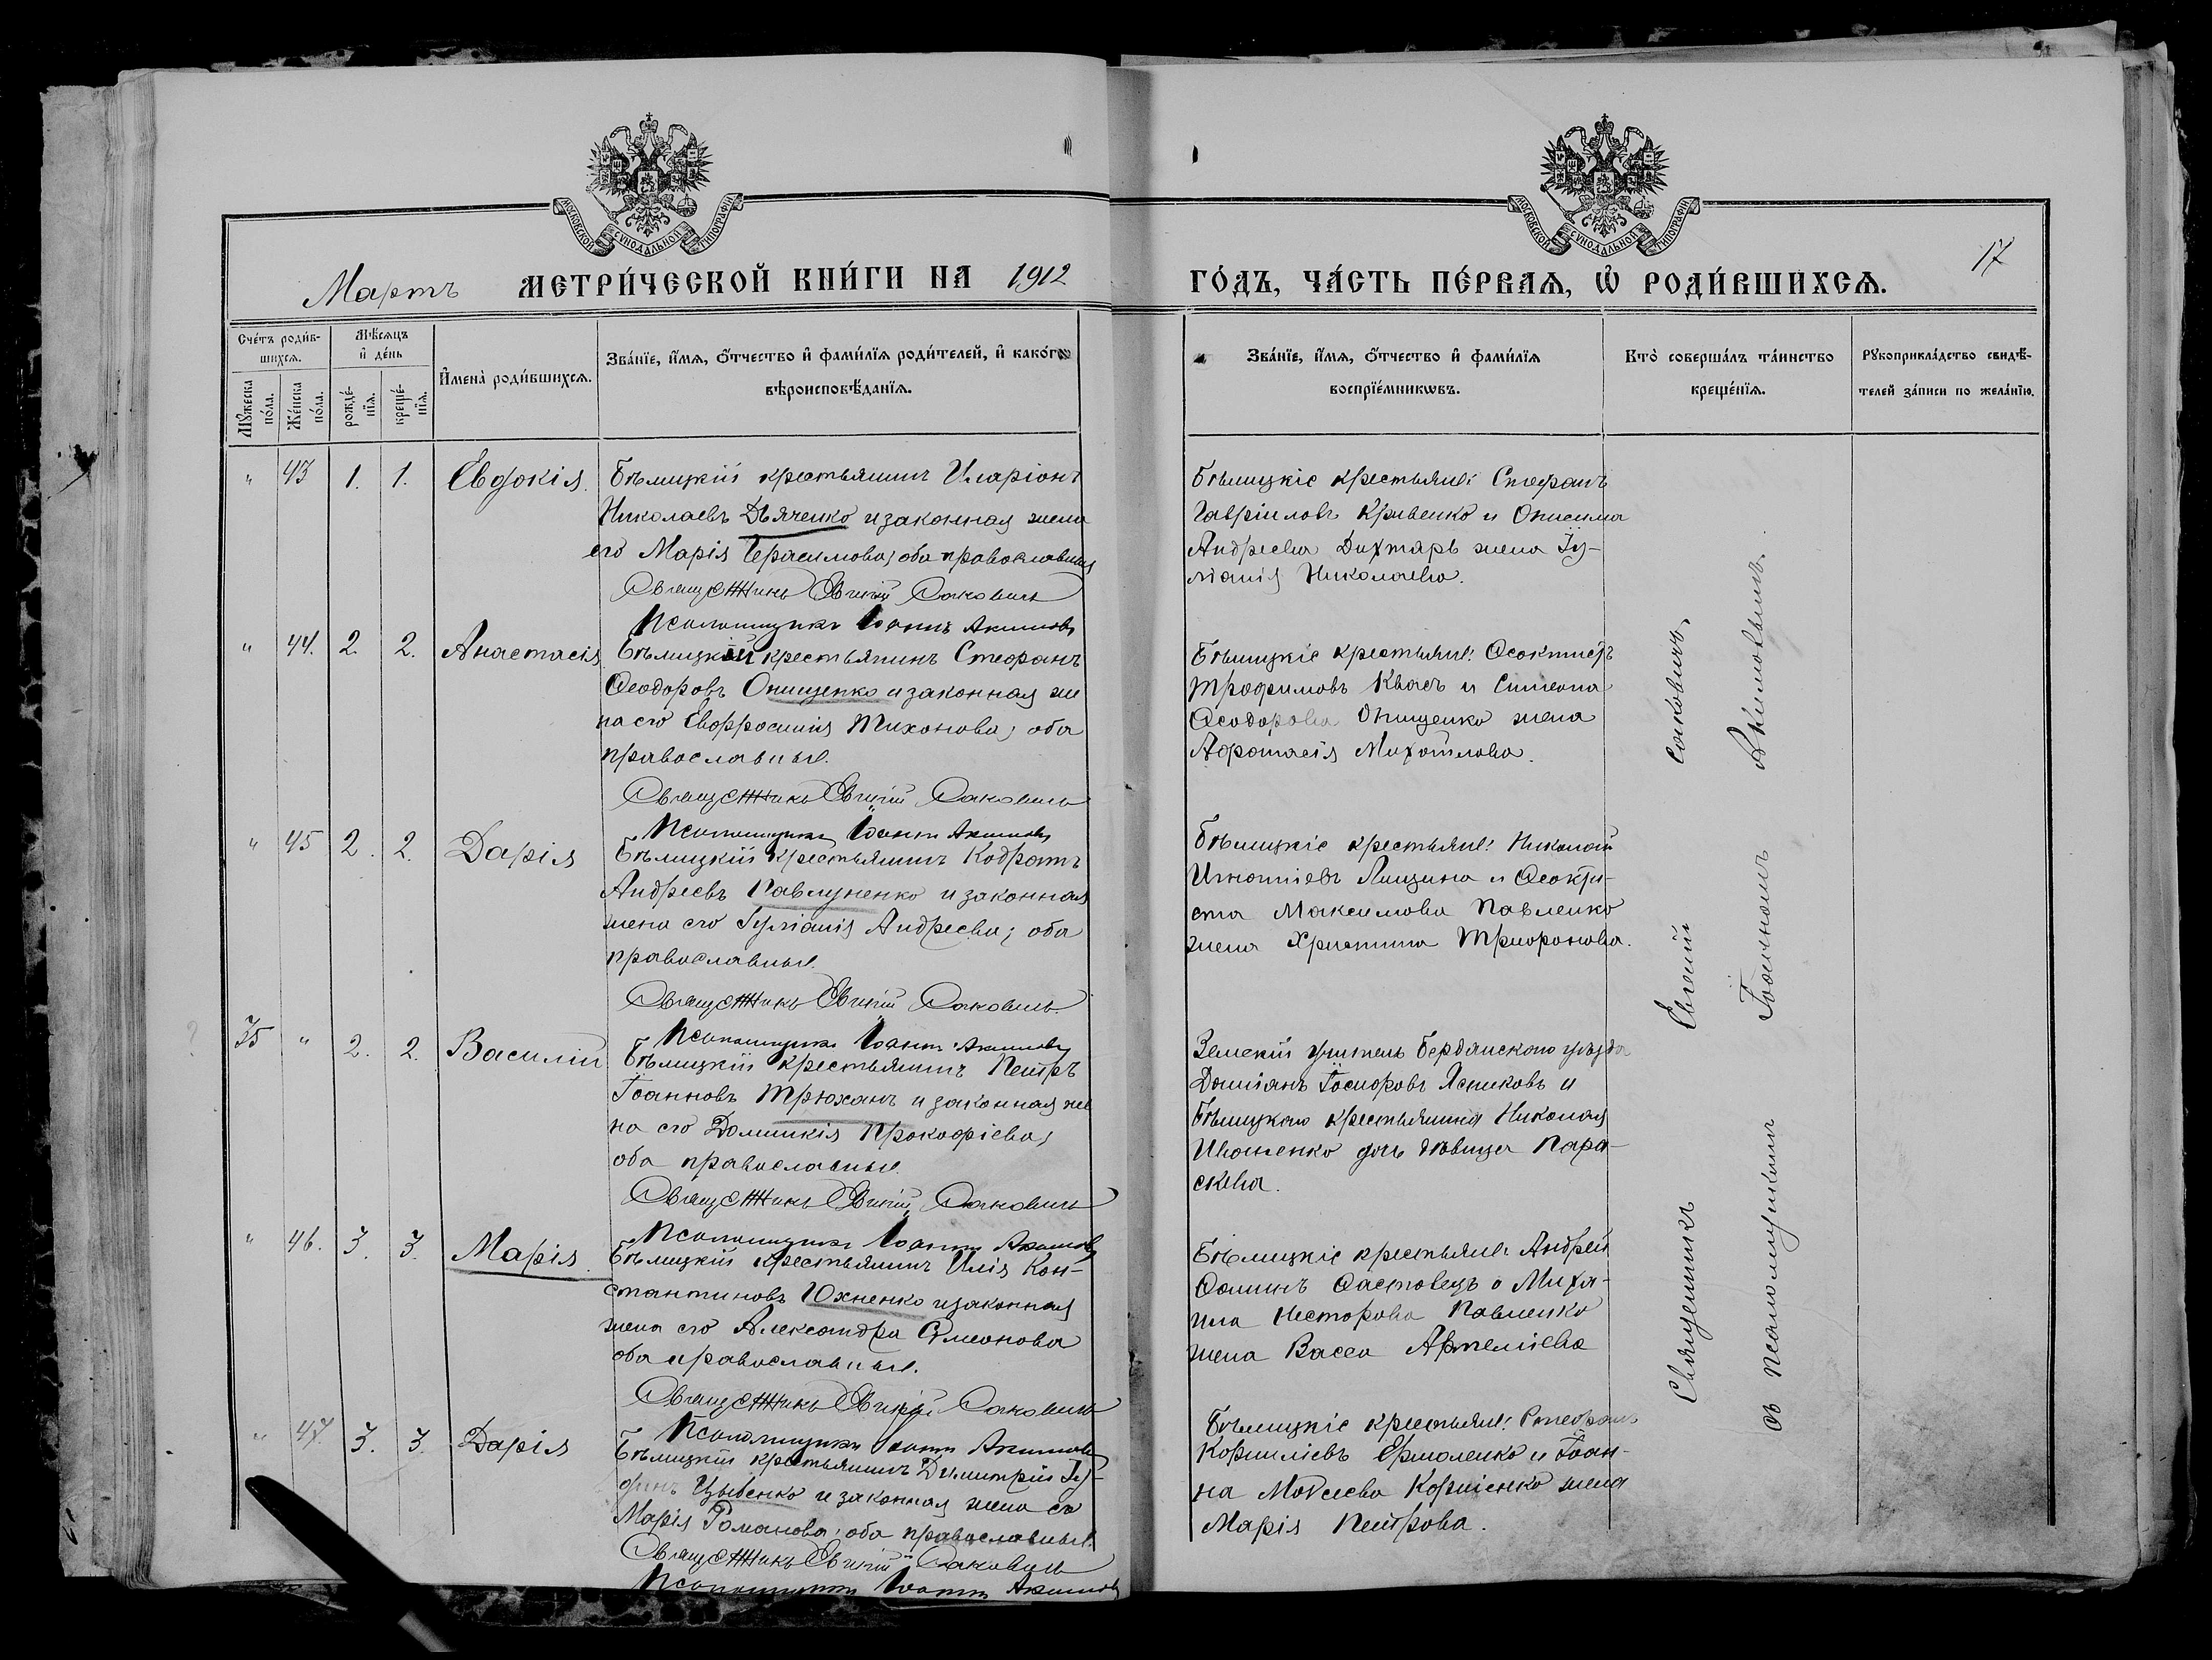 МОСКОВСКОЙ СѴНОДАЛЬНОЙ ТИПОГРАФІИ
МОСКОВСКОЙ СѴНОДАЛЬНОЙ ТИПОГРАФІИ
17
Мартъ МЕТРИ́ЧЕСКОЙ КНИ́ГИ НА 1912 ГО́ДЪ, ЧА́СТЬ ПЕ́РВАѦ, Ѡ҆ РОДИ́ВШИХСѦ.
Сче́тъ роди́вшихсѧ.
Мꙋ́жеска по́ла.
Же́нска по́ла.
Мѣ́сѧцъ и҆ де́нь
рожде́нїѧ.
креще́нїѧ.
И҆мена̀ роди́вшихсѧ.
Зва́нїе, и҆́мѧ, ѻ҆́тчество и҆ фами́лїѧ роди́телей, и҆ како́гѡ
вѣроисповѣ́данїѧ.
Зва́нїе, и҆́мѧ, ѻ҆́тчество и҆ фами́лїѧ
воспрїе́мникѡвъ.
Кто̀ соверша́лъ та́инство
креще́нїѧ.
Рꙋкоприкла́дство свидѣ́-
телей за́писи по жела́нїю.
" 43 1. 1. Евдокія.
Бѣлицкій крестьянинъ Иларіонъ
Николаевъ Дьяченко и законная жена
его Марія Герасимова; оба православныя
Священникъ Евгеній Саковичъ
Псаломщикъ Іоаннъ Акимовъ
Бѣлицкіе крестьяне: Стефанъ
Гавріиловъ Кривенко и Онисима
Андреева Дихтярь жена Іу-
ліанія Николаева.
" 44. 2. 2. Анастасія
Бѣлицкій крестьянинъ Стефанъ
Ѳеодоровъ Онищенко и законная же
на его Евфросинія Тихонова; оба
православные.
Священникъ Евгеній Саковичъ
Псаломщикъ Іоаннъ Акимовъ
Бѣлицкіе крестьяне: Ѳеоктистъ
Трофимовъ Квасъ и Симеона
Ѳеодорова Онищенко жена
Афанасія Михайлова.
" 45 2. 2. Дарія
Бѣлицкій крестьянинъ Кодратъ
Андреевъ Павлуненко и законная
жена его Іуліанія Андреева; оба
православные.
Священникъ Евгеній Саковичъ
Псаломщикъ Іоаннъ Акимовъ
Бѣлицкіе крестьяне: Николай
Игнатіевъ Лищина и Ѳеокти-
ста Максимова Павленко
жена Христина Трифонова.
35 " 2. 2. Василій
Бѣлицкій крестьянинъ Петръ
Іоанновъ Трюханъ и законная же
на его Домникія Прокофіева;
оба православные.
Священникъ Евгеній Саковичъ
Псаломщикъ Іоаннъ Акимовъ
Земскій учитель Бердянскаго уѣзда
Даміанъ Іосифовъ Ясиковъ и
Бѣлицкаго крестьянина Николая
Ивоненко дочь дѣвица Пара-
скева.
" 46. 3. 3. Марія.
Бѣлицкій крестьянинъ Илія Кон-
стантиновъ Юхненко и законная
жена его Александра Симеонова
оба православные.
Священникъ Евгеній Саковичъ
Псаломщикъ Іоаннъ Акимовъ
Бѣлицкіе крестьяне: Андрей
Ѳоминъ Фастовецъ и Миха-
ила Несторова Павленко
жена Васса Артеміева
" 47. 3. 3. Дарія
Бѣлицкій крестьянинъ Димитрій Іу-
Цыбенко и законная жена его
Марія Романова; оба православные.
Священникъ Евгеній Саковичъ
Псаломщикъ Іоаннъ Акимовъ
Бѣлицкіе крестьяне: Стефанъ
Корниліевъ Ермоленко и Іоан-
на Моисеева Корніенко жена
Марія Петрова.
Священникъ Евгеній Саковичъ,
съ псаломщикомъ Іоанномъ Акимовымъ.